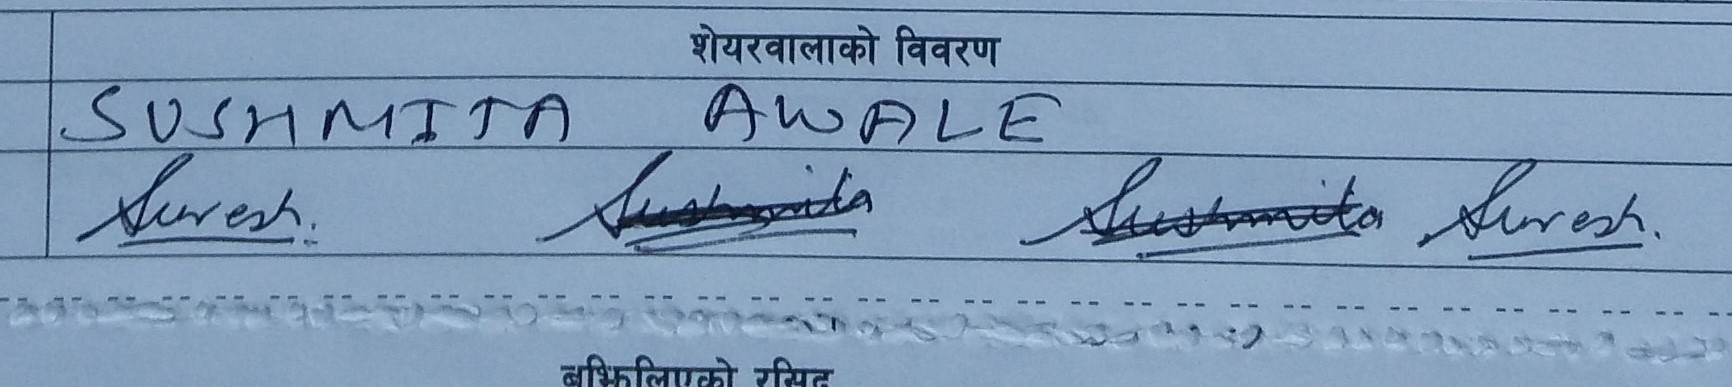 शेयरवालाको विवरण
SUSHMITA AWALE
Suresh. Sushmita Sushmita Suresh.
बुझिलिएको रसिद